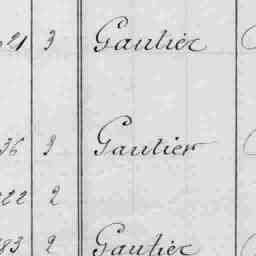 21 3 Gautier
36 3 Gautier
222 2
83 2 Gautier